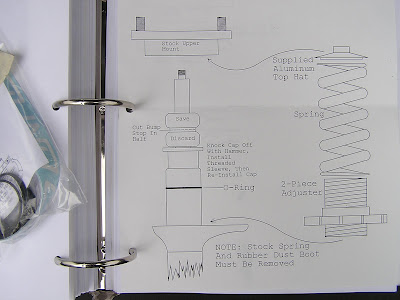 Stock Upper
Mount
Supplied
Aluminum
Top Hat
Spring
Cut Bump
Stop In
Half
Save
Discard
Knock Cap Off
With Hammer,
Install
Threaded
Sleeve, Then
Re-Install Cap
O-Ring
2-Piece
Adjuster
NOTE: Stock Spring
And Rubber Dust Boot
Must Be Removed